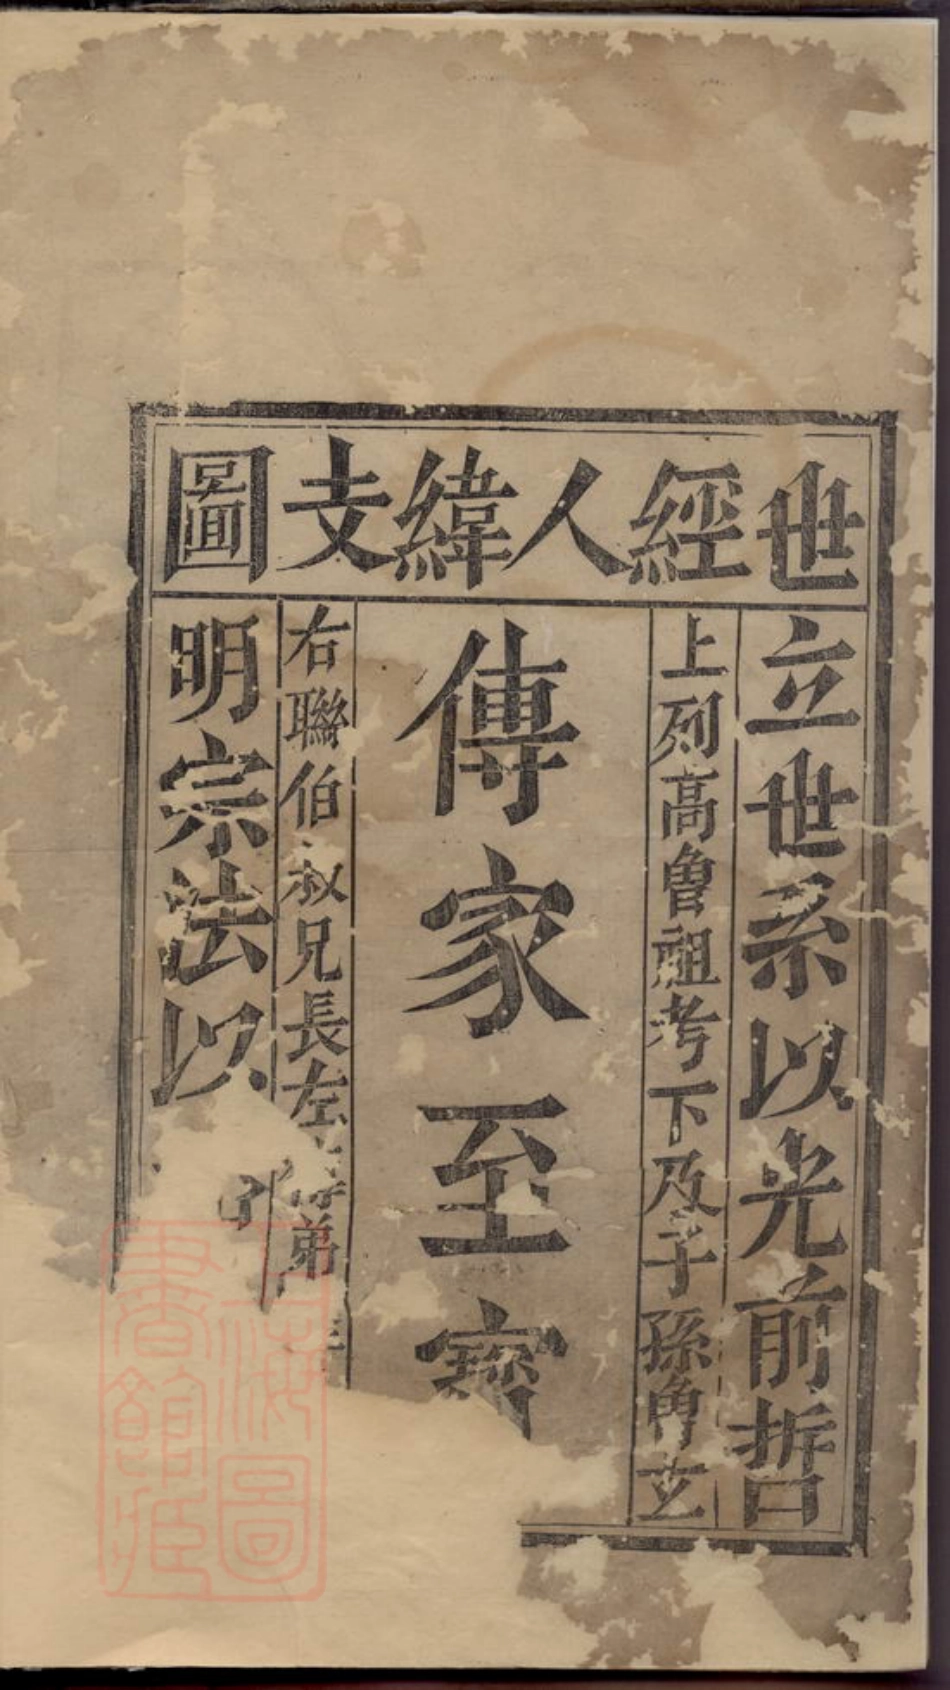 世經人緯支圖
立世系以光前哲
上列高曾祖考下及子孫曾玄
傳家至寶
右聯伯叔兄長左弟
明宗法以
上海圖書館藏